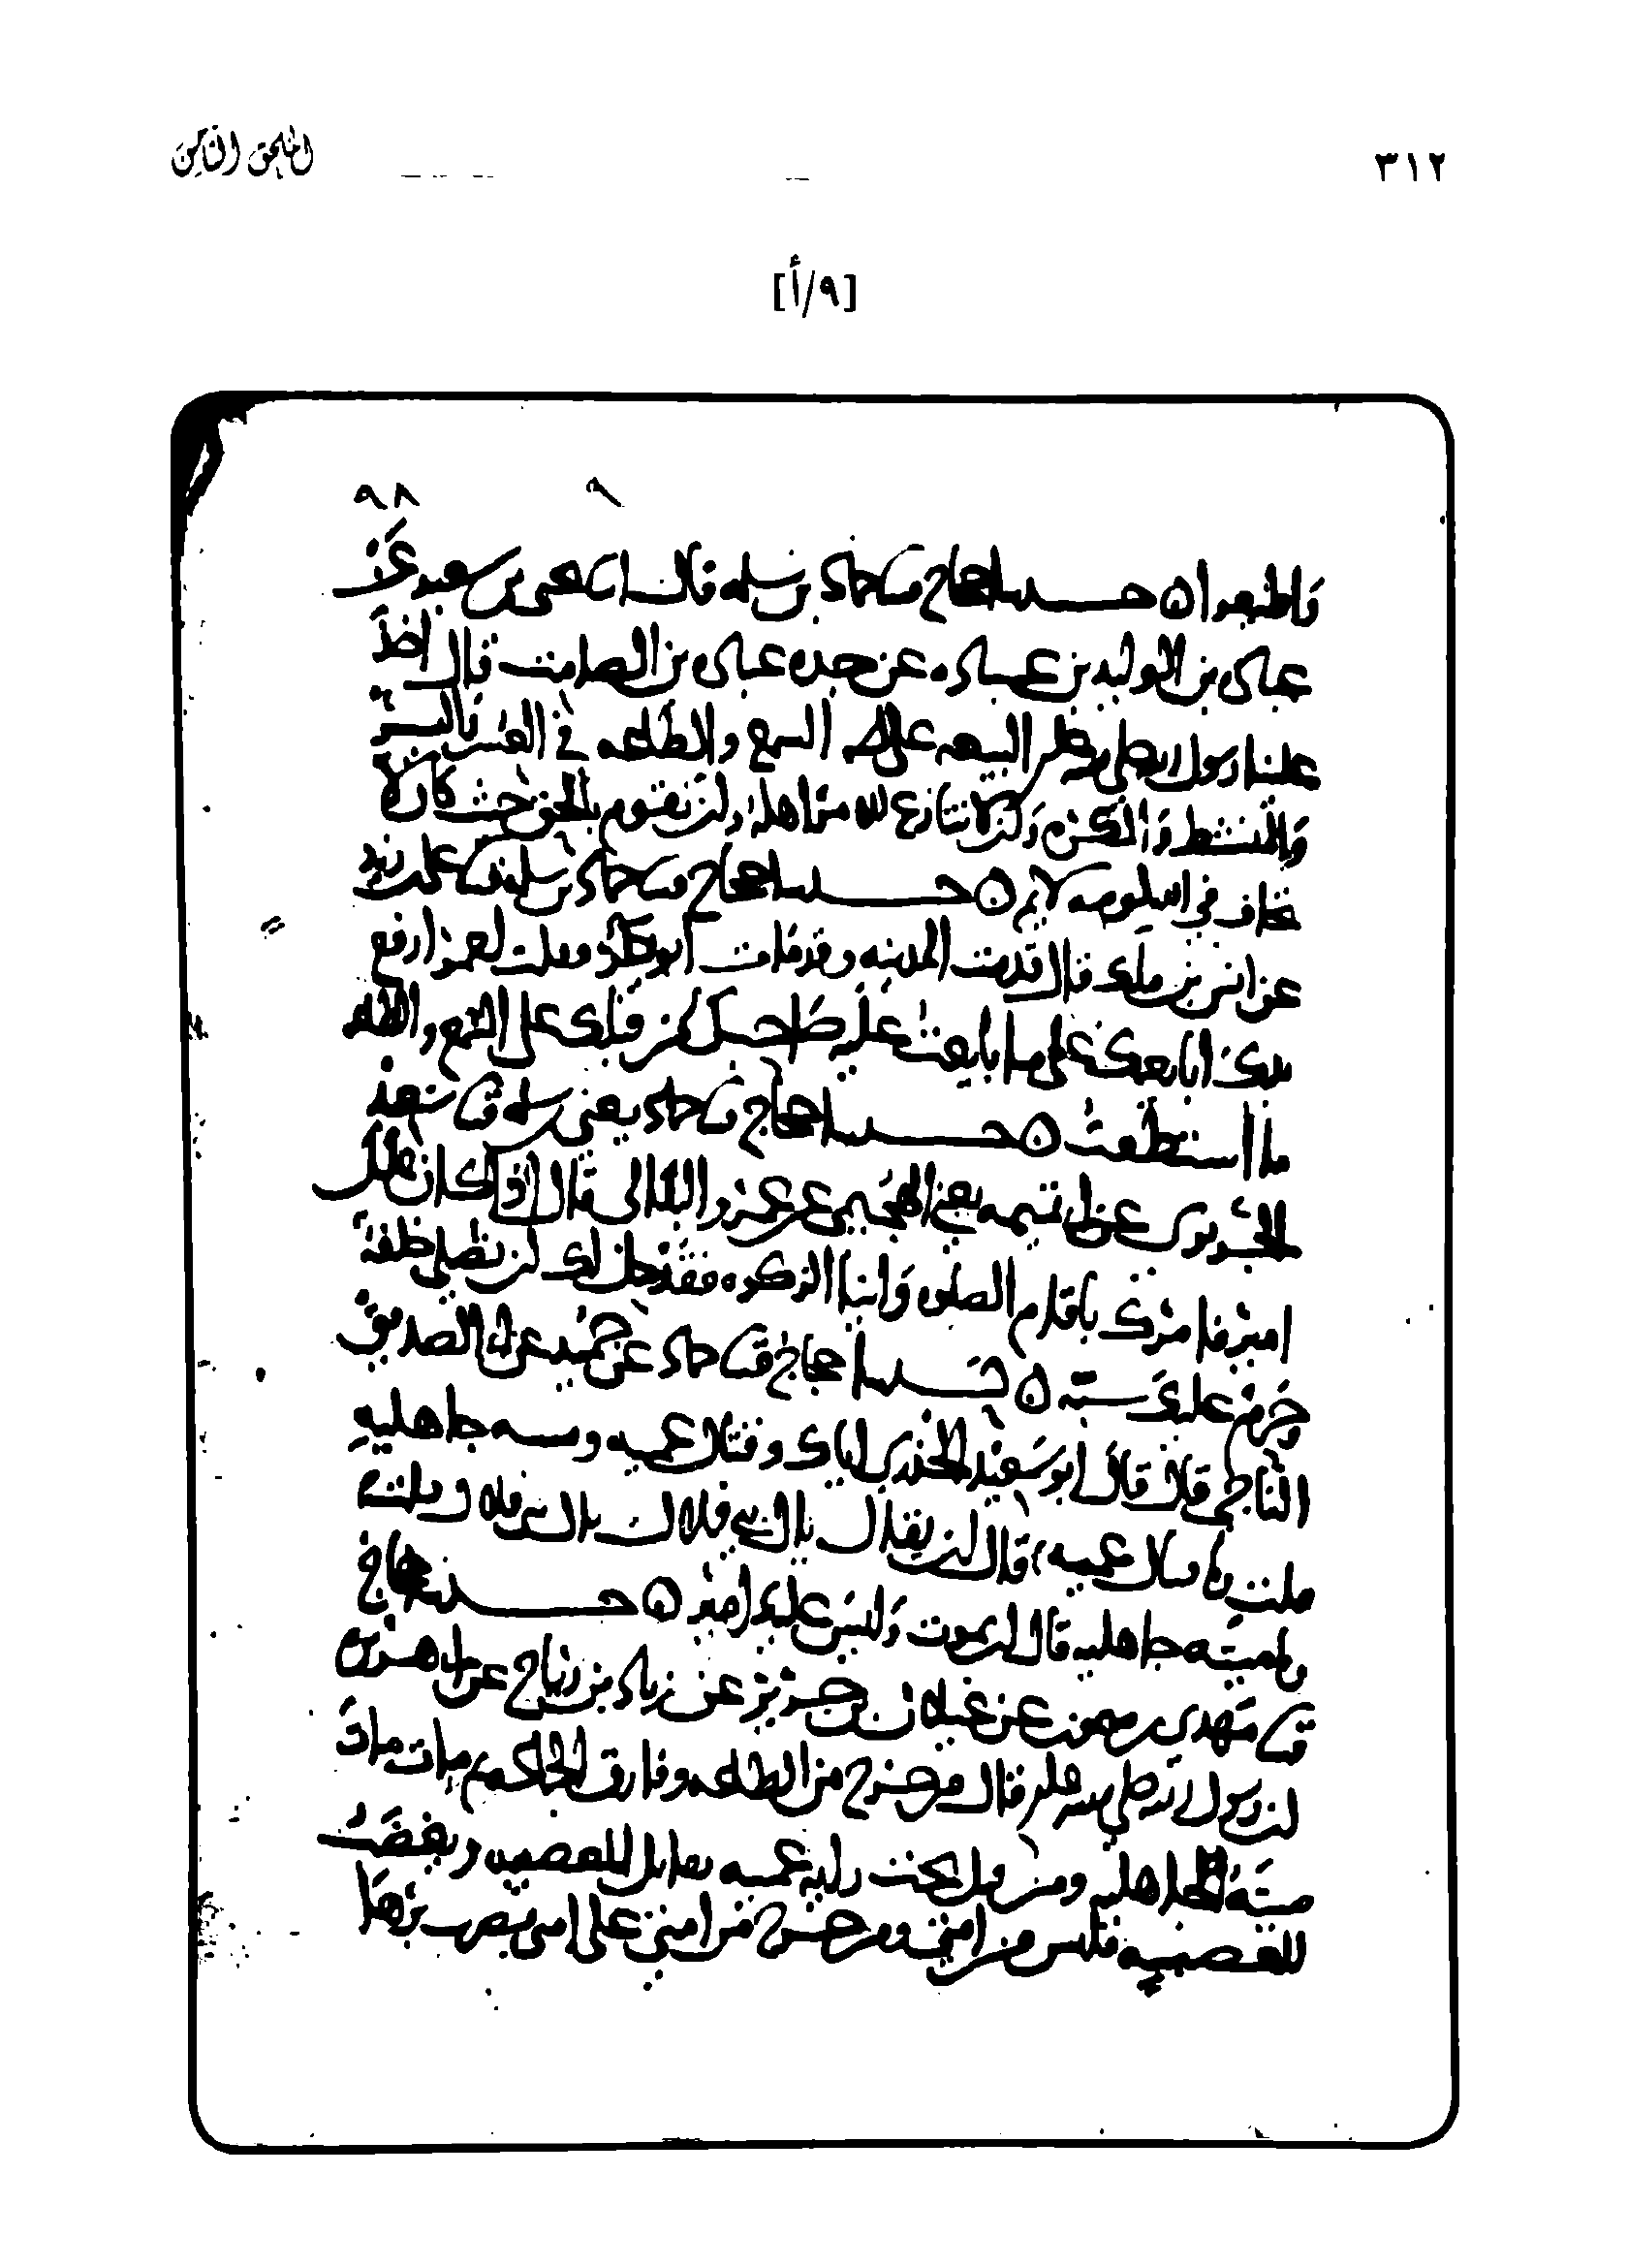 ٣١٢
الملحق الثامن
[٩/أ]
٩ ٩٨
واطيعوا ه حدثنا حجاج ثنا حماد بن سلمه قال انا يحيى بن سعيد عن
عباده بن الوليد بن عباده عن جده عباده بن الصامت قال اخذ
علينا رسول الله صلى الله عليه البيعه على السمع والطاعه في العسر واليسر
والمنشط والمكره وان لا ننازع الامر اهله وان نقوم بالحق حيث كان لا
نخاف في الله لومه لايم ه حدثنا حجاج ثنا حماد بن سلمه ثنا علي بن زيد
عن انس بن ملك قال قدمت المدينه وقد مات ابو بكر فقلت لعمر ارفع
يدك ابايعك على ما بايعت عليه صاحبك من قبلك على السمع والطاعه
ما استطعت ه حدثنا حجاج ثنا حماد يعني بن سلمه ثنا سعيد
الجريري عن ابي تميمه يعني الهجيمي عن عمرو البكالي قال اذا كان عليك
امير فامرك باقام الصلوه وايتا الزكوه فقد حل لك ان تصلي خلفه
وحرم عليك سبه ه حدثنا حجاج ثنا حماد عن حميد عن ابي الصديق
الناجي قال قال ابو سعيد الخدري اياك وقتال عميه وميته جاهليه
قلت وما قتال عميه قال ان يقال يال بني فلان يال بني فلان وقلت
وما ميته جاهليه قال ان يموت وليس عليك امير ه حدثنا حجاج
ثنا مهدي بن ميمون عن غيلان بن جرير عن زياد بن رياح عن ابي هريره
ان رسول الله صلى الله عليه قال من خرج من الطاعه وفارق الجماعه ثم مات مات
ميته الجاهليه ومن قتل تحت رايه عميه يقاتل للعصبيه ويغضب
للعصبيه فليس من امتي ومن خرج من امتي على امتي يضرب برها